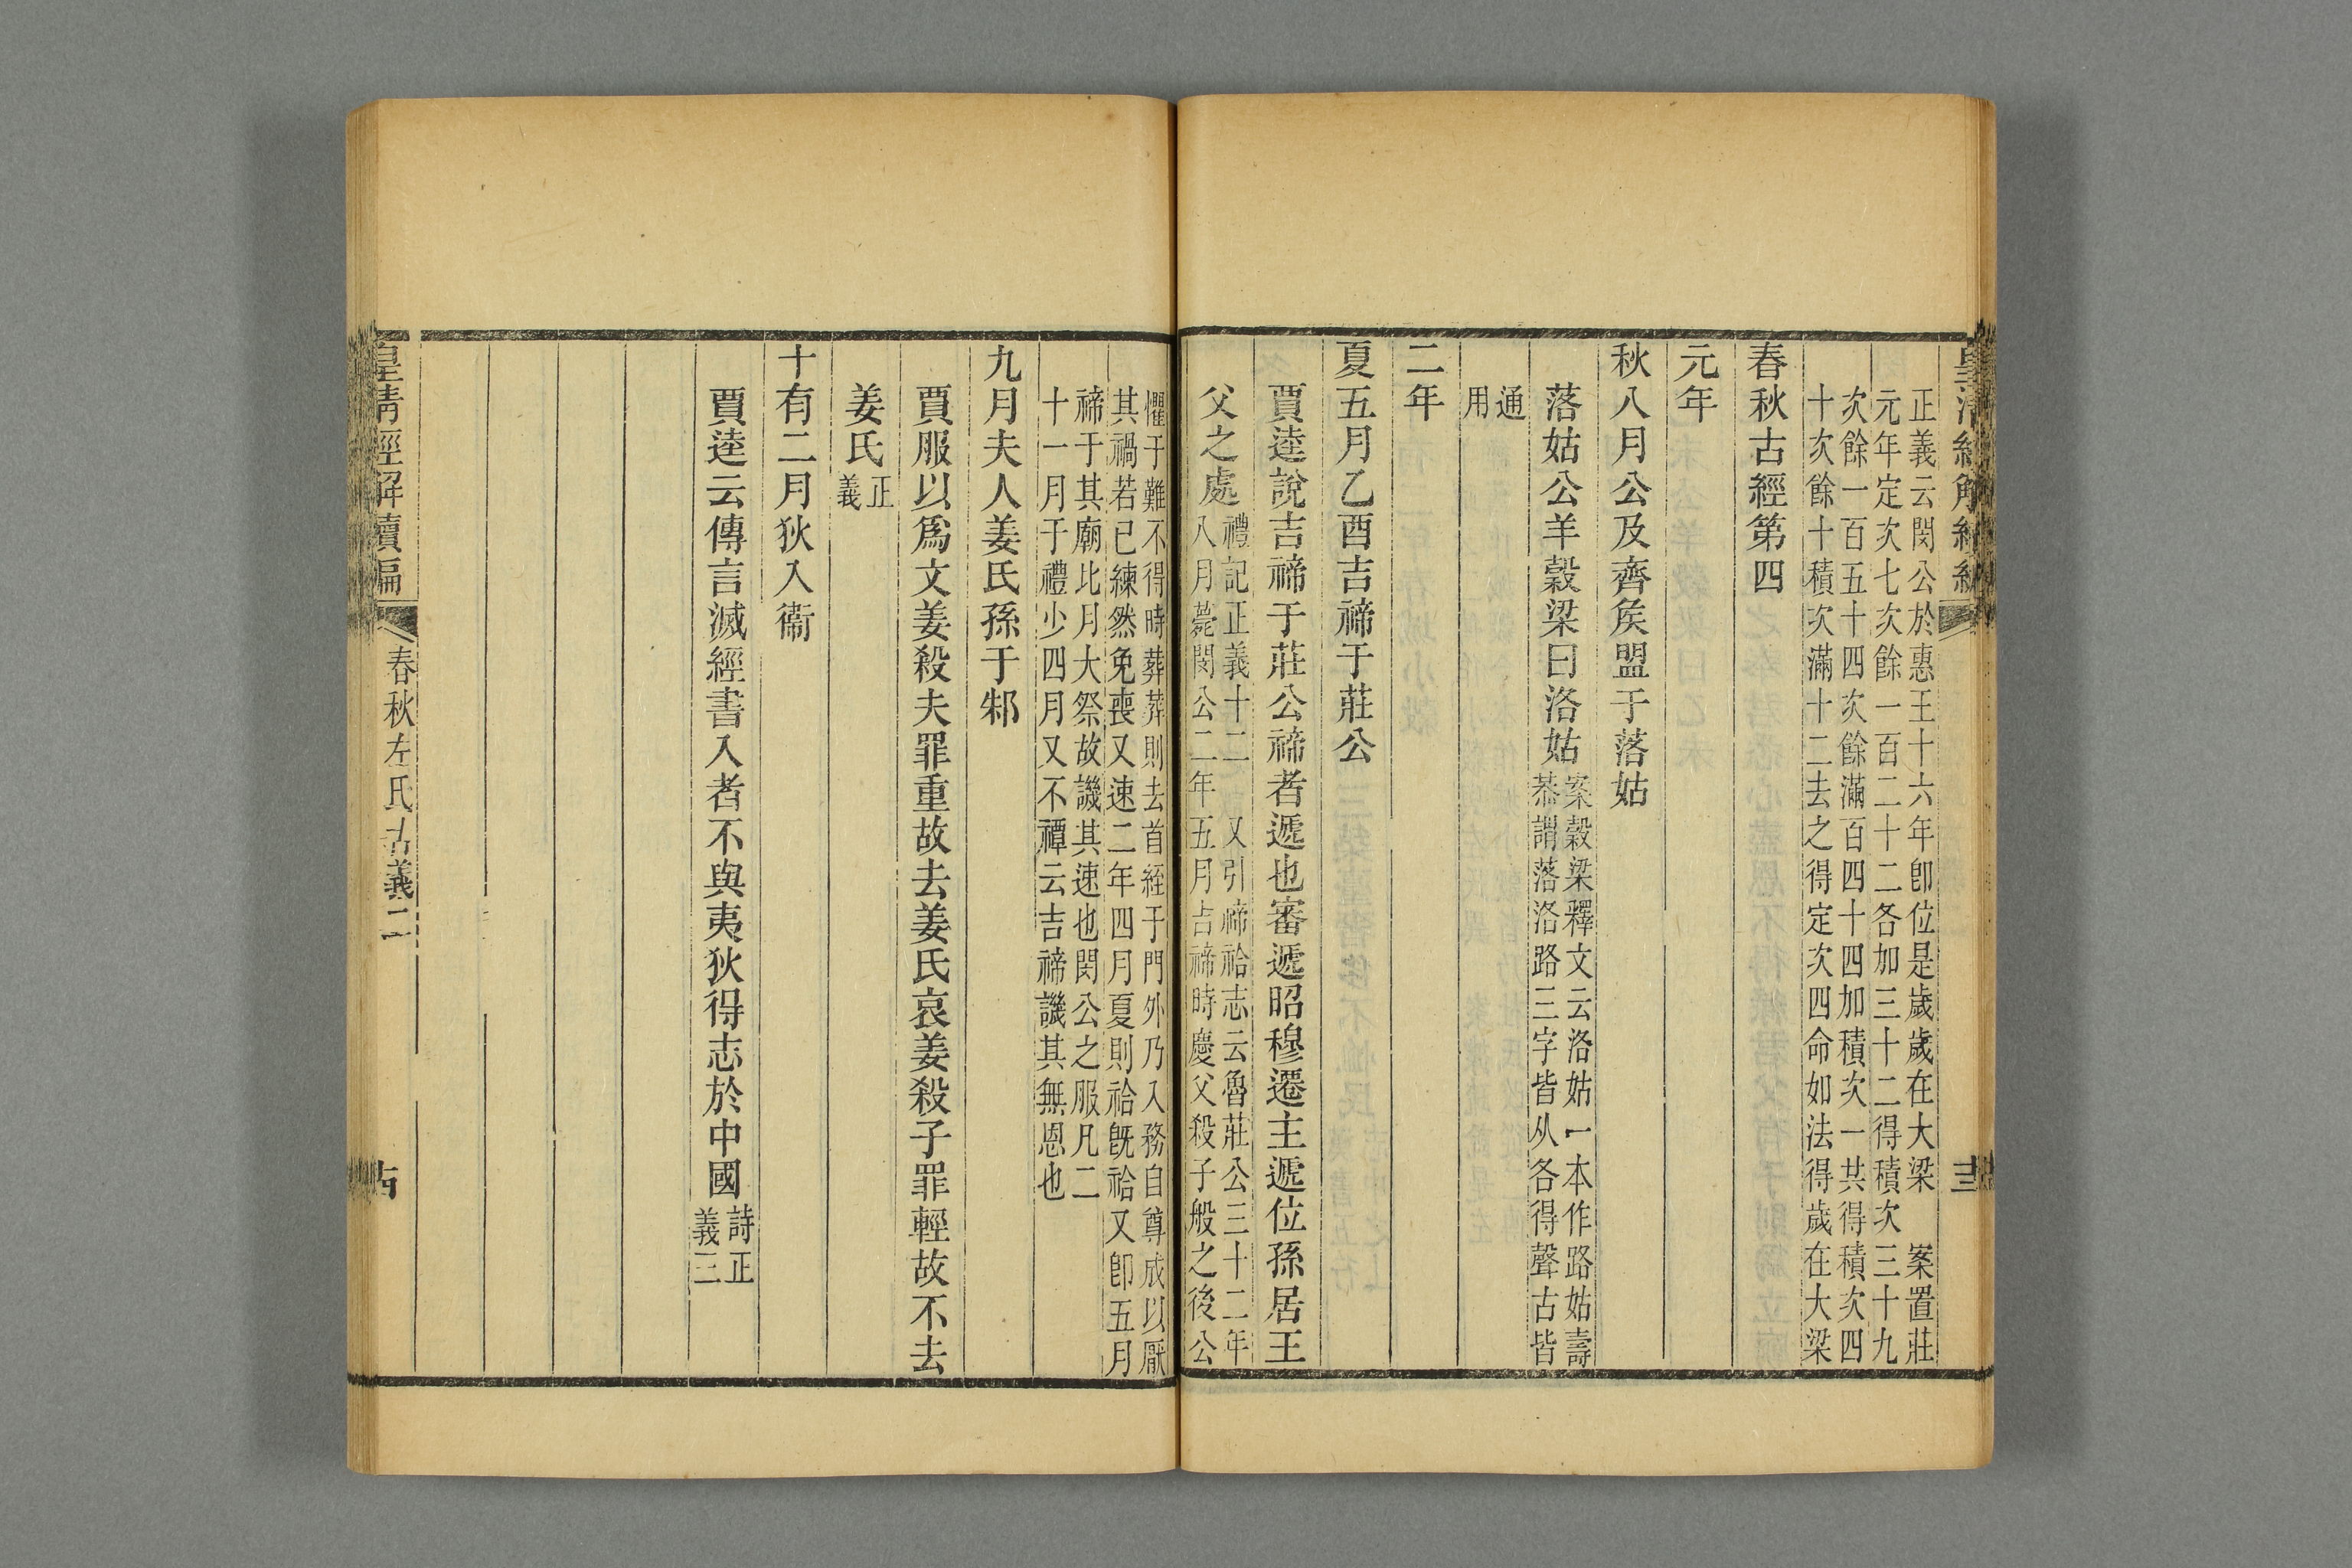 皇清經解續編
十三
正義云閔公於惠王十六年卽位是歲歲在大梁　案置莊
元年定次七次餘一百二十二各加三十二得積次三十九
次餘一百五十四次餘滿百四十四加積次一共得積次四
十次餘十積次滿十二去之得定次四命如法得歲在大梁
春秋古經第四
元年
秋八月公及齊矦盟于落姑
落姑公羊穀梁曰洛姑
案穀梁釋文云洛姑一本作路姑壽
恭謂落洛路三字皆从各得聲古皆
通
用
二年
夏五月乙酉吉禘于莊公
賈逵說吉禘于莊公禘者遞也審遞昭穆遷主遞位孫居王
父之處
禮記正義十二　又引禘祫志云魯莊公三十二年
八月薨閔公二年五月吉禘時慶父殺子般之後公
懼于難不得時葬葬則去首絰于門外乃入務自尊成以厭
其禍若已練然免喪又速二年四月夏則祫旣祫又卽五月
禘于其廟比月大祭故譏其速也閔公之服凡二
十一月于禮少四月又不禫云吉禘譏其無恩也
九月夫人姜氏孫于邾
賈服以爲文姜殺夫罪重故去姜氏哀姜殺子罪輕故不去
姜氏
正
義
十有二月狄入衞
賈逵云傳言滅經書入者不與夷狄得志於中國
詩正
義三
皇清經解續編
春秋左氏古義二
十四